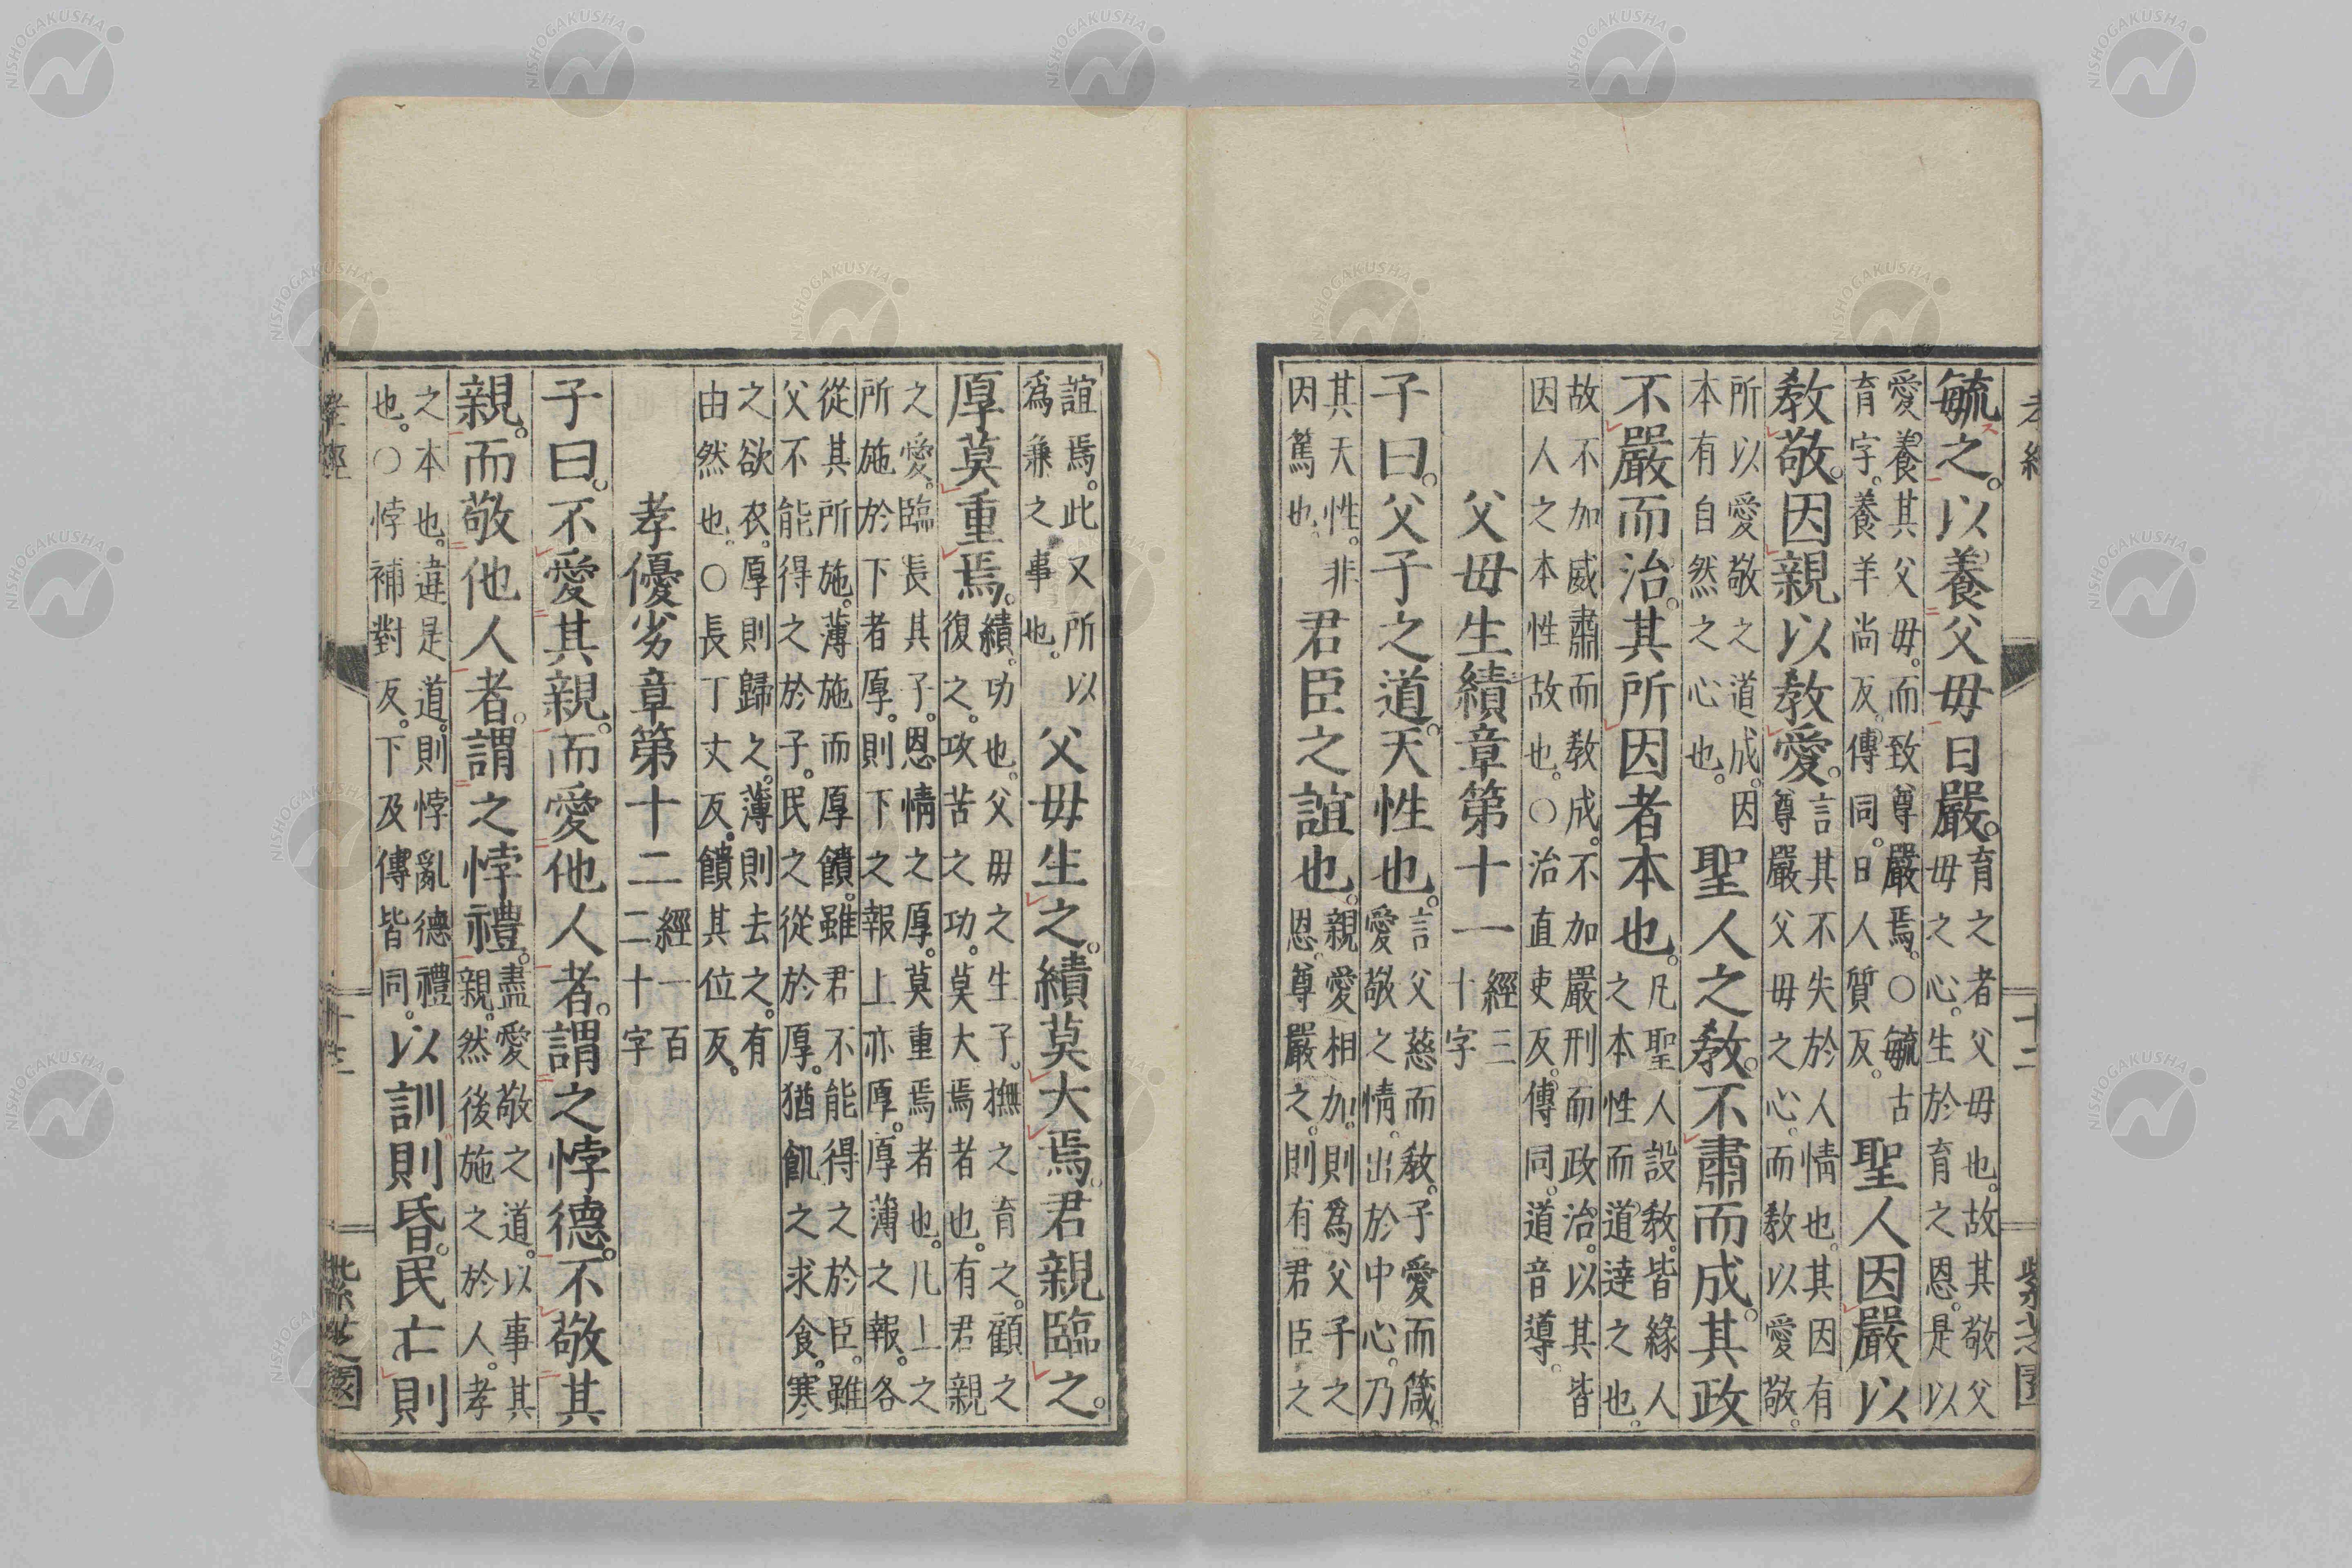 毓之。以養父母日嚴。育之者父母也。故其敬父
母之心。生於育之恩。是以
愛養其父母。而致尊嚴焉。○毓古
育字。養羊尚反。傳同。日人質反。聖人因嚴以
教敬。因親以教愛。言其不失於人情也。其因有
尊嚴父母之心。而教以愛敬。
所以愛敬之道成。因
本有自然之心也。聖人之教。不肅而成。其政
不嚴而治。其所因者本也。凡聖人設教。皆緣人
之本性而道達之也。
故不加威肅而教成。不加嚴刑而政治。以其皆
因人之本性故也。○治直吏反。傳同。道音導。
父母生績章第十一 經三
十字
子曰。父子之道。天性也。言父慈而教。子愛而箴。
愛敬之情。出於中心。乃
其天性。非
因篤也。君臣之誼也。親愛相加。則爲父子之
恩。尊嚴之。則有君臣之
誼焉。此又所以
爲兼之事也。父母生之。績莫大焉。君親臨之。
厚莫重焉。績。功也。父母之生子。撫之育之。顧之
復之。攻苦之功。莫大焉者也。有君親
之愛。臨長其子。恩情之厚。莫重焉者也。凡上之
所施於下者厚。則下之報上亦厚。厚薄之報。各
從其所施。薄施而厚饋。雖君不能得之於臣。雖
父不能得之於子。民之從於厚。猶飢之求食。寒
之欲衣。厚則歸之。薄則去之。有
由然也。○長丁丈反。饋其位反。
孝優劣章第十二 經一百
二十字
子曰。不愛其親。而愛他人者。謂之悖德。不敬其
親。而敬他人者。謂之悖禮。盡愛敬之道。以事其
親。然後施之於人。孝
之本也。違是道。則悖亂德禮
也。○悖補對反。下及傳皆同。以訓則昏。民亡則